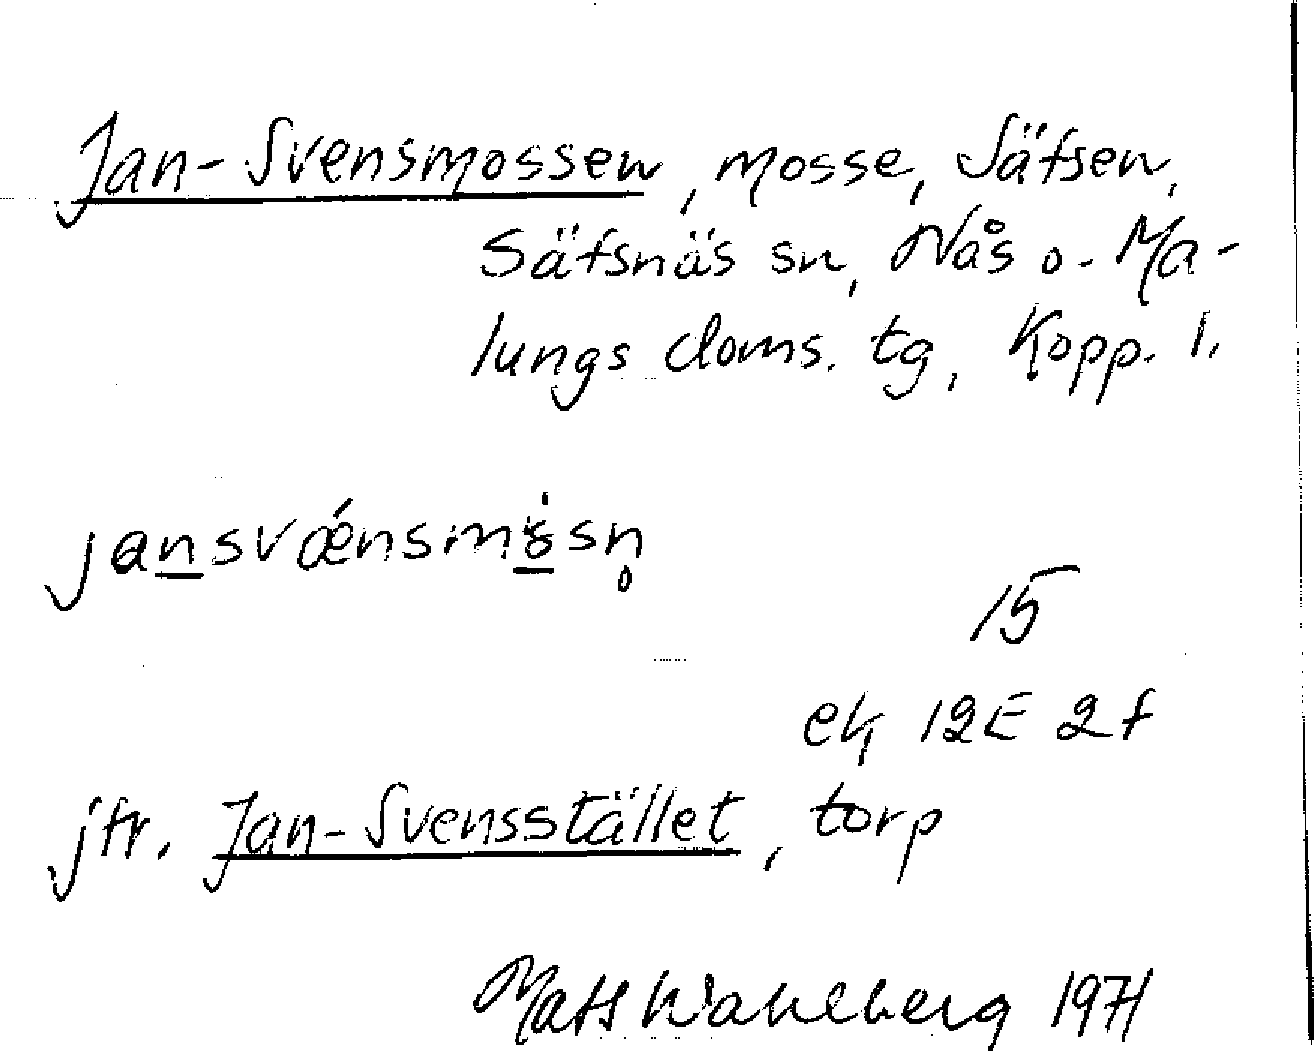 Jan-Svensmossen, mosse, Säfsen,
Säfsnäs sn, Nås o. Ma-
lungs doms. tg, Kopp. l.
15
ek 12E 2f
jfr. Jan-Svensstället, torp
Mats Wahlberg 1971